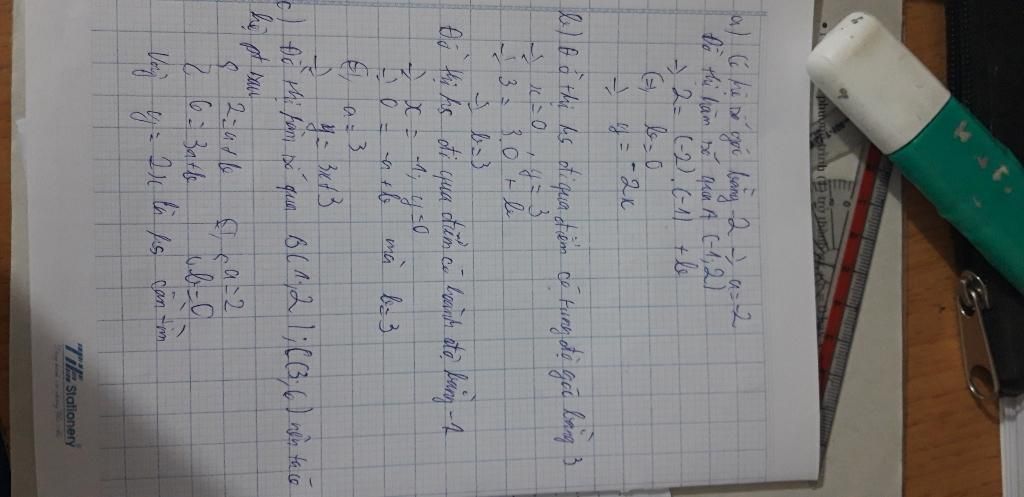 a) Có hệ số góc bằng -2 => a = -2
Đồ thị hàm số qua A (-1; 2)
=> 2 = (-2).(-1) + b
<=> b = 0
=> y = -2x
b) Đồ thị hs đi qua điểm có tung độ gốc bằng 3
=> x = 0, y = 3
=> 3 = 3.0 + b
=> b = 3
Đồ thị hs đi qua điểm có hoành độ bằng -1
=> x = -1, y = 0
=> 0 = -a + b mà b = 3
<=> a = 3
=> y = 3x + 3
c) Đồ thị hàm số qua B(1; 2); C(3; 6) nên ta có
hệ pt sau
{ 2 = a + b <=> { a = 2
{ 6 = 3a + b { b = 0
Vậy y = 2x là hs cần tìm
TIE Stationery